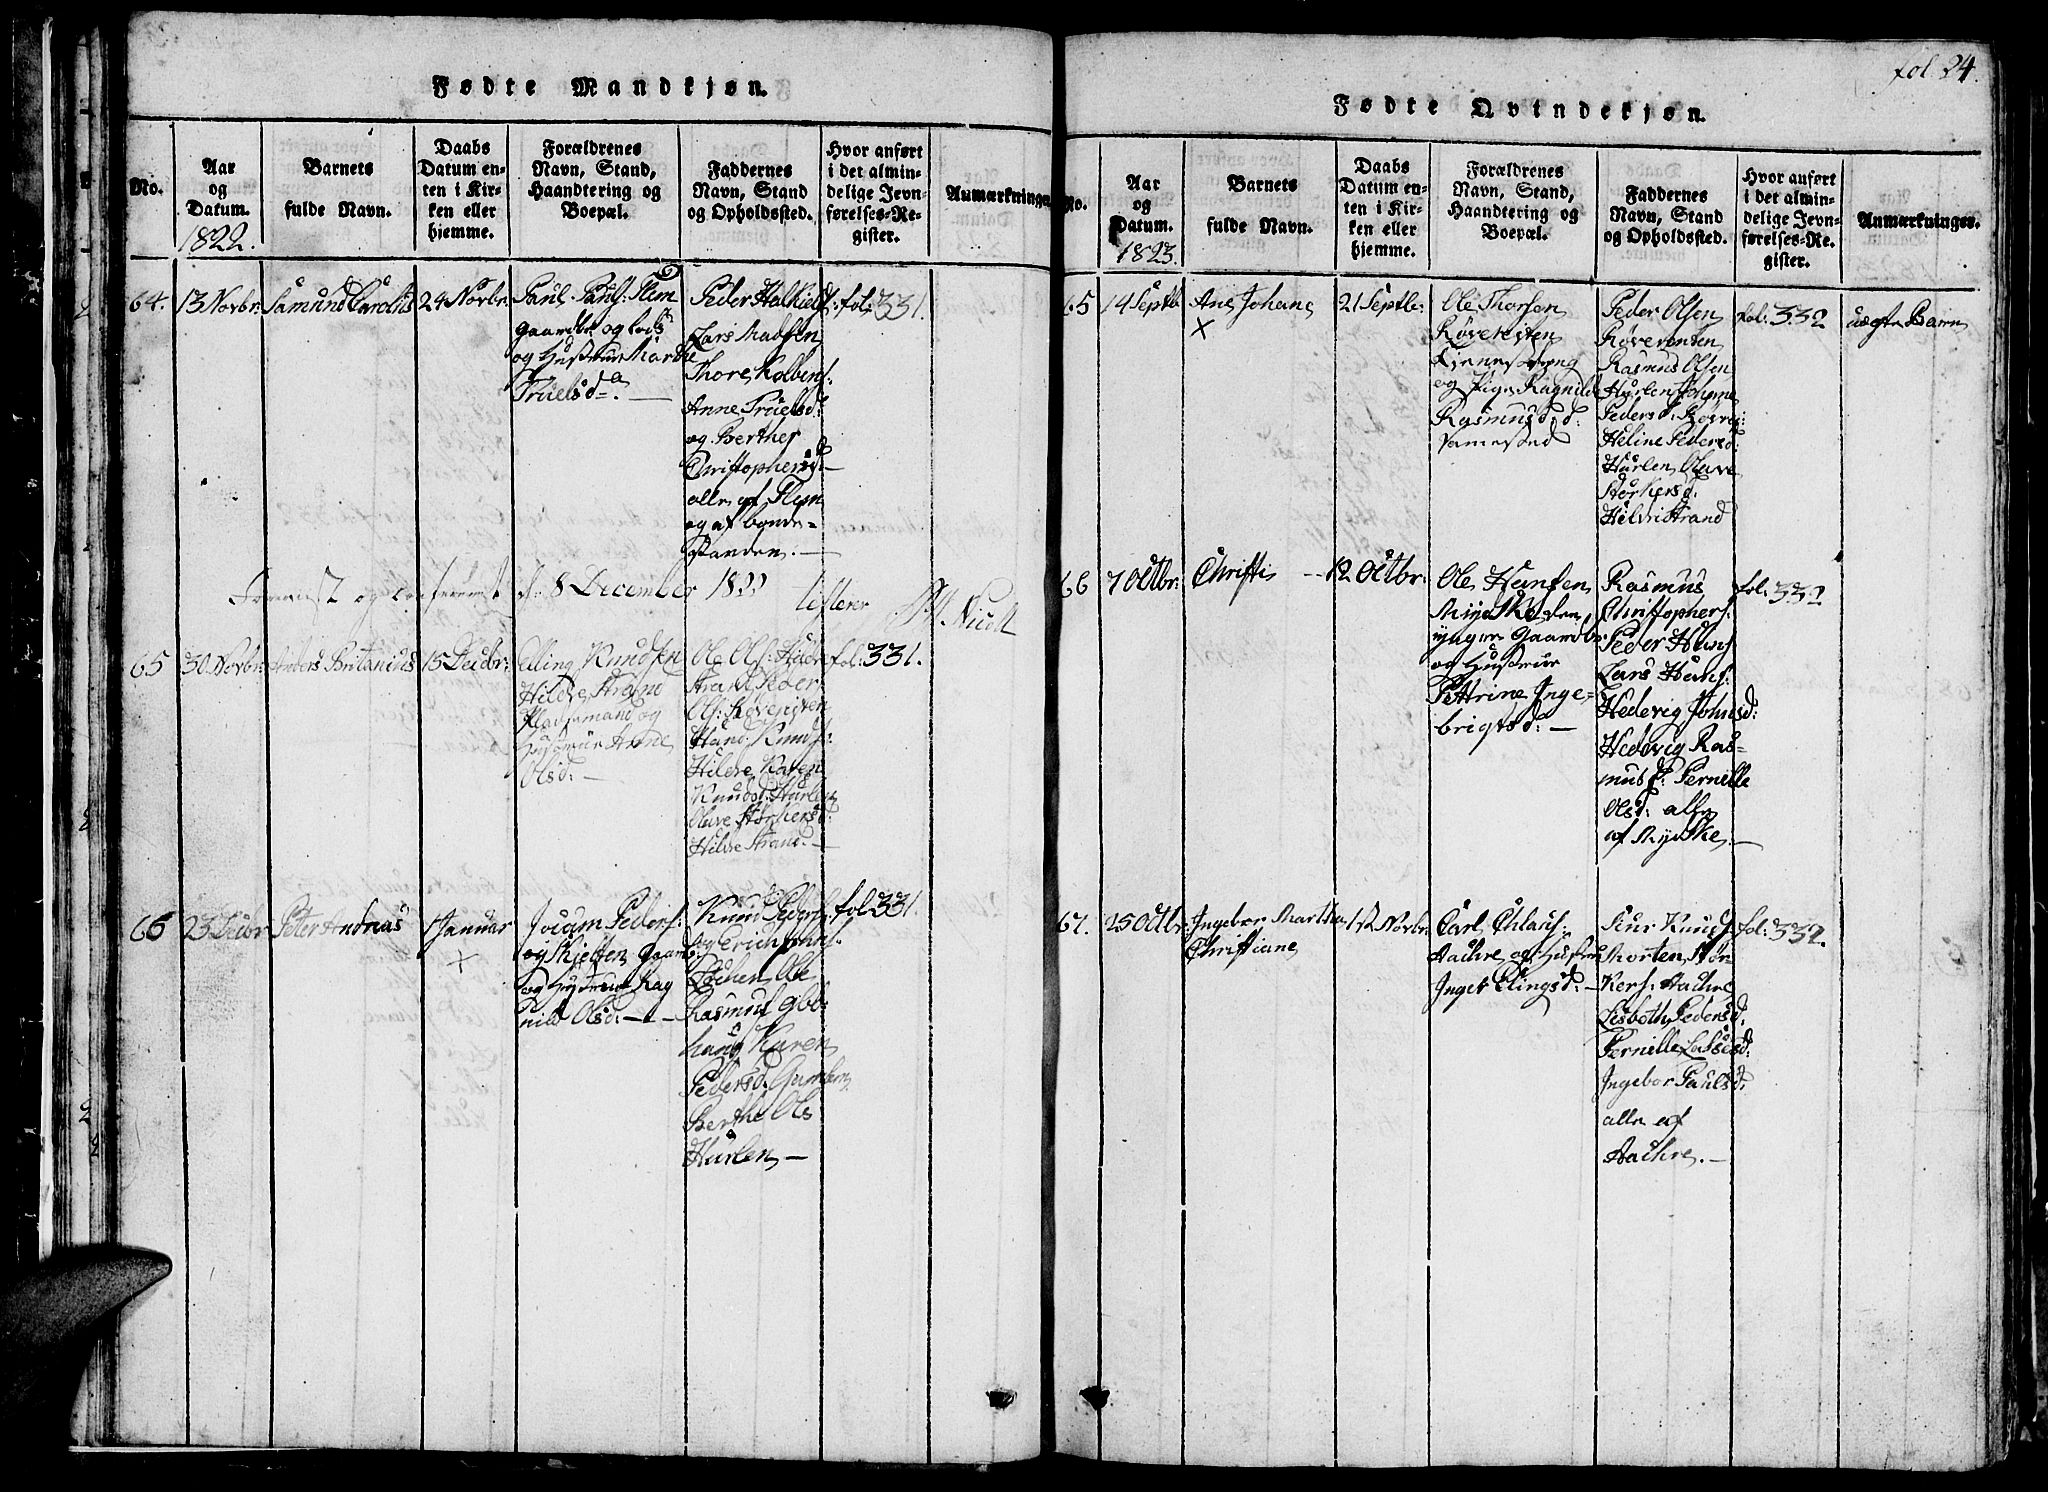 Fødte Mandkjøn.
No.
Aar
og
Datum.
1822.
Barnets
fulde Navn.
Daabs
Datum en-
ten i Kir-
ken eller
hjemme.
Forældrenes
Navn, Stand,
Haandtering og
Boepæl.
Faddernes
Navn, Stand
og Opholdssted.
Hvor anført
i det almin-
delige Jevn-
førelses-Re-
gister.
Anmærkninger
64.
13 Novbr:
Samund Carolus
24 Novbr:
Paul Pauls: Flem
Gaardbr og
og Hustrue Marthe
Truelsd.
Peder Halkields:
Lars Madsen
Thore Kolbens:
Anne Truelsd:
og Berthe
Christophersd:
alle af Flem
og af bonde-
standen.
fol: 331.
8 December 1822
65
30 Novbr:
Anders Britanius
15 Decbr:
Elling Knudsen
Hildre Strand
Pladsmand og
Hustrue Anne
Olsd:
Ole Ols: Hildre
Strand, Peder
Ols: Røvensten
Hans Knuds:
Hildre Karen
Knudsd: Hurlen
Olave Storkersd:
Hildre Strand.
fol: 331.
66
23 Decbr
Peter Andreas
1 Januar
×
Jocum Peders:
Skjelten Gaardb
og Hustrue Rag
nild Olsd:
Knud Peders:
og Erich
Ole
Rasmus
haug Karen
Pedersd:
Berthe Ols
Hurlen
fol 331.
fol. 24.
Fødte Qvindekjøn.
No.
Aar
og
Datum.
1823.
Barnets
fulde Navn.
Daabs
Datum en-
ten i Kir-
ken eller
hjemme.
Forældrenes
Navn, Stand,
Haandtering og
Boepæl.
Faddernes
Navn, Stand
og Opholdssted.
Hvor anført
i det almin-
delige Jevn-
førelses-Re-
gister.
Anmærkninger.
65
14 Septb
Ane Johane
×
21 Septbr:
Ole Thorsen
Røvensten
og Pige Ragnilde
Rasmusd:
Peder Olsen
Røvensten
Rasmus Olsen
Hurlen Johanne
Pedersd:
Heline Pedersd:
Hurlen, Olave
Storkersd:
Hildrestrand
fol: 332
uægte Barn
66
7 Octbr:
Christi
12 Octbr:
Ole Hansen
Myeskeden
ynger Gaardbr.
og Hustrue
Pettrine Inge-
brigtsd:
Rasmus
Christophers:
Peder Hans:
Lars Hans:
Hedevig Johnsd:
Hedevig Ras-
musd: Pernille
Olsd: alle
af Myeske.
fol: 332
67.
25 Octbr:
Ingebor Martha
Christiane
12 Novbr:
Carl Chlaus:
Aachre og Hustru
Inger Elingsd:
Siur Knuds:
Morten Stor-
kers: Aachre
Lisbeth Pedersd:
Pernille Lassesd:
Ingebor Paulsd:
alle af
Aachre.
fol: 332.